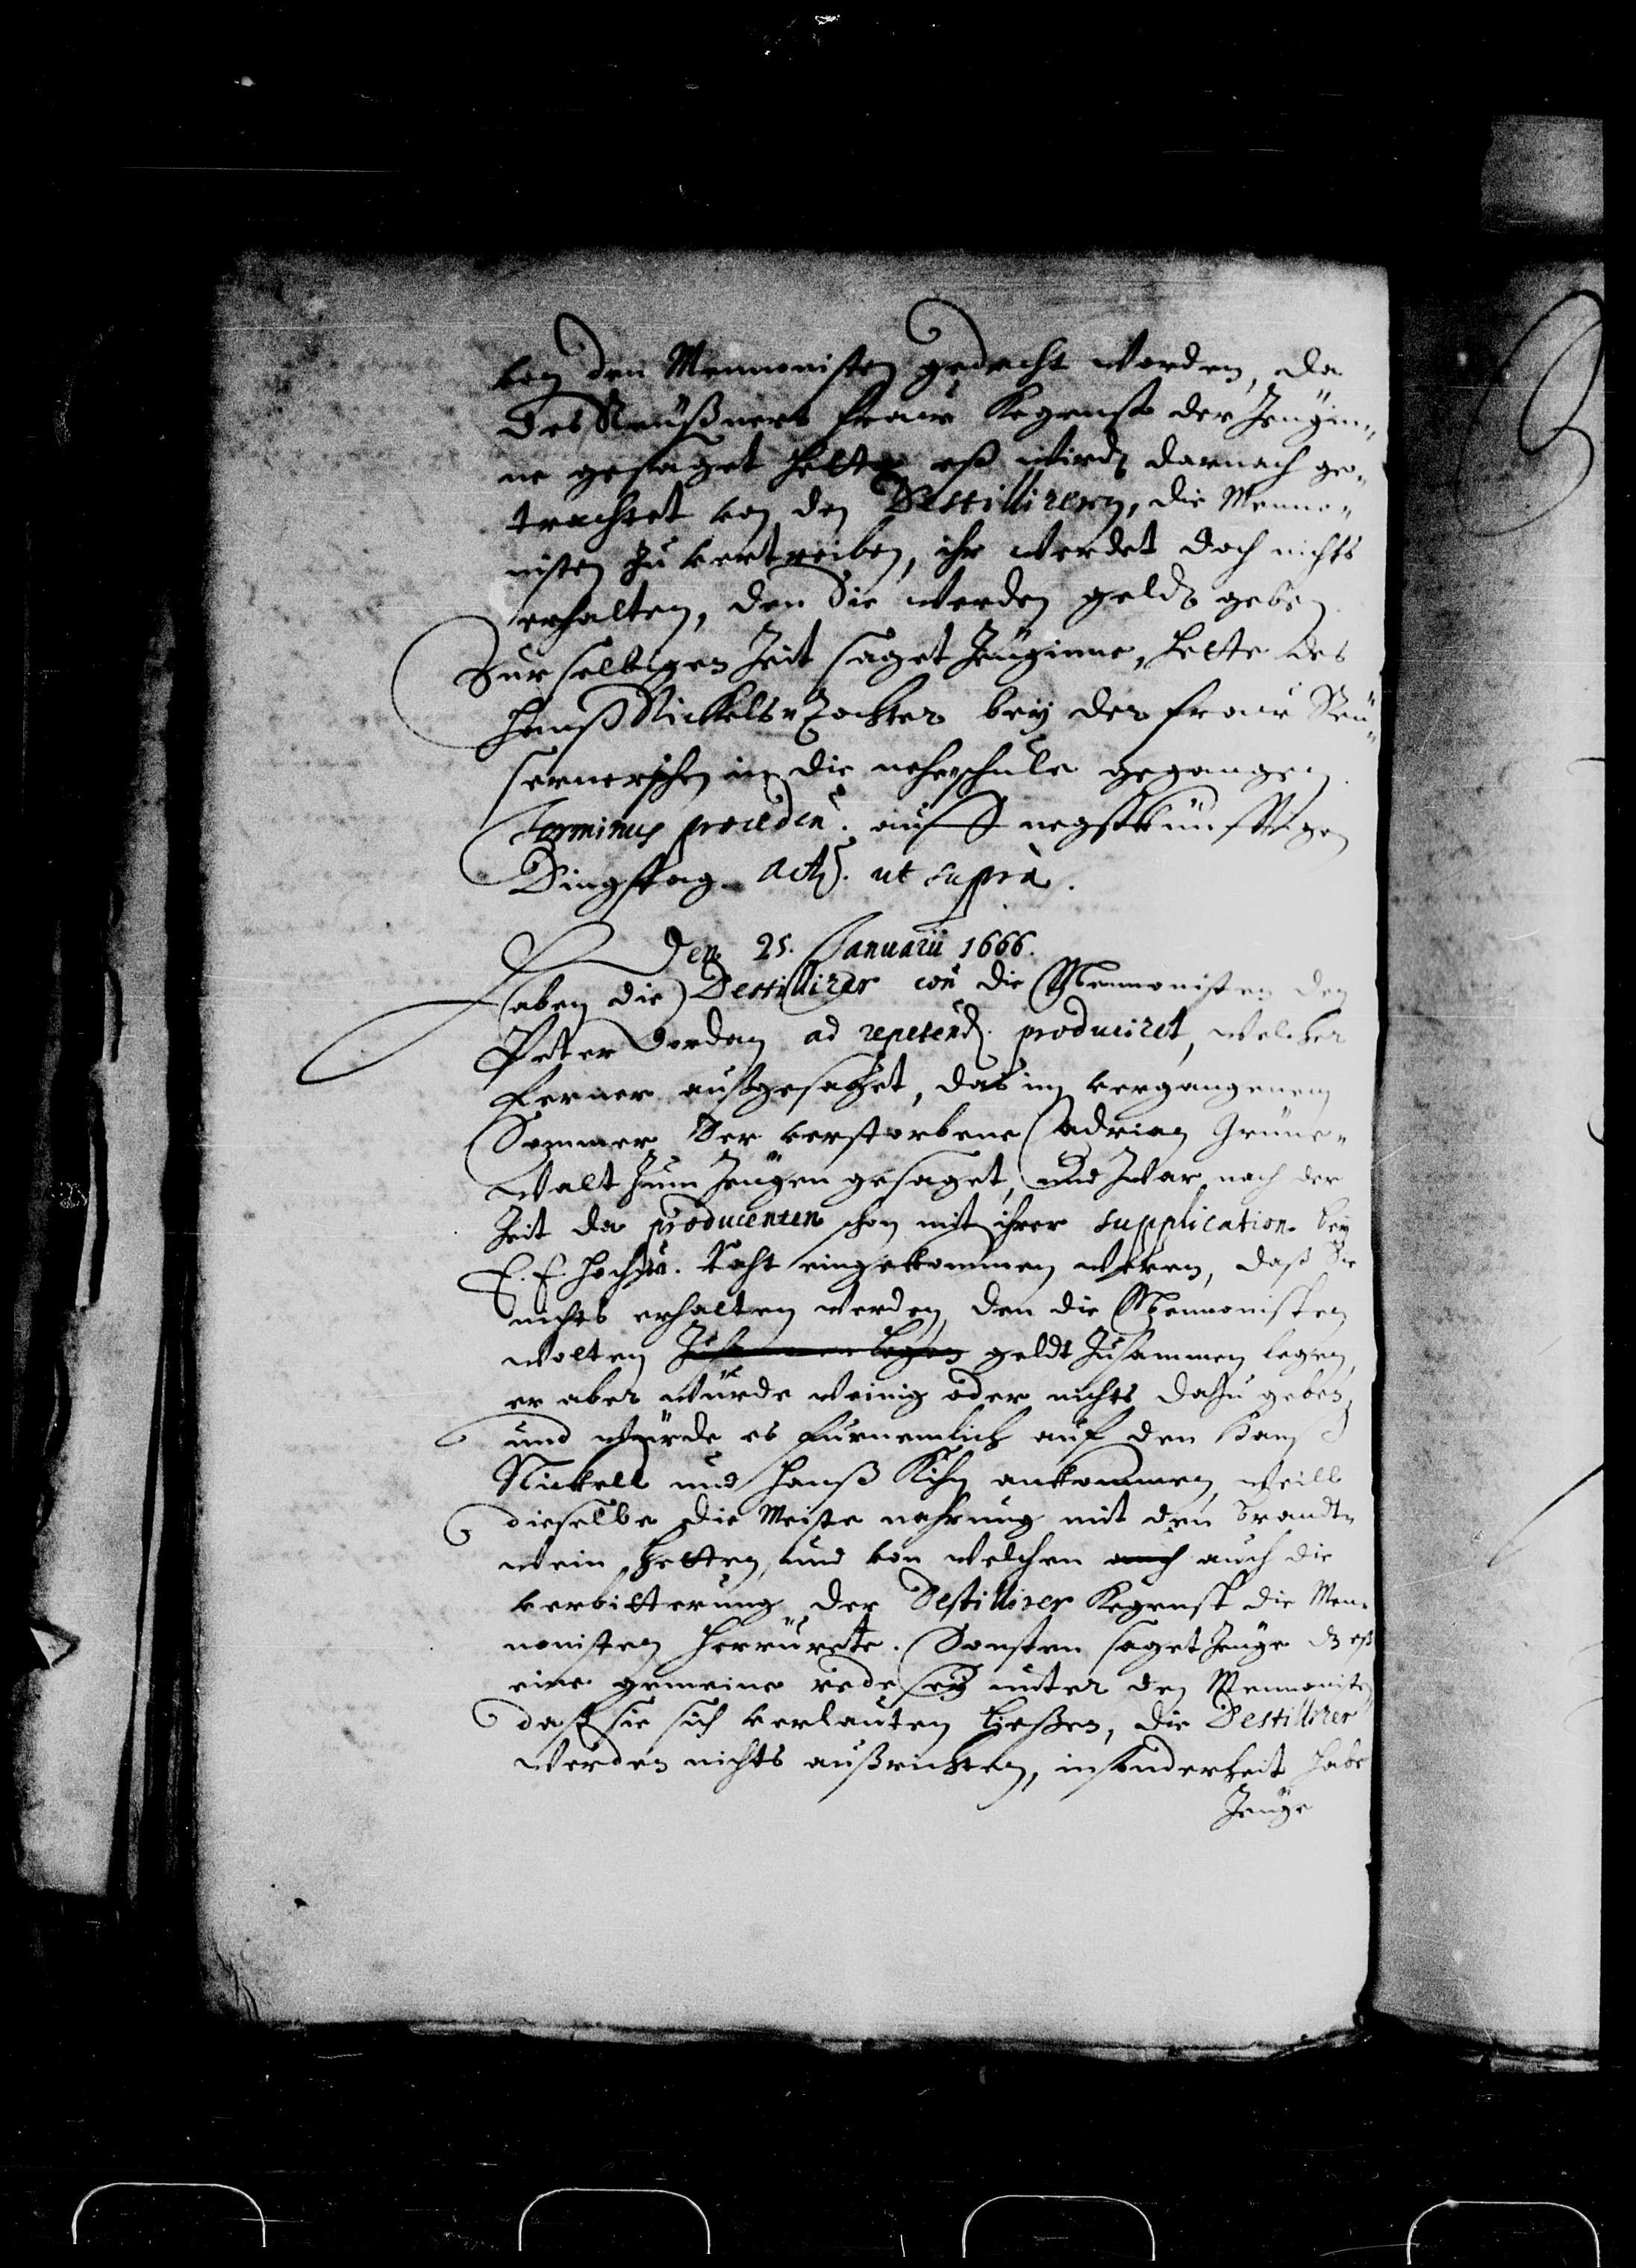 von den Mennonisten gedacht worden, da
des Neüßners fraw kegenst der Zeügin„
ne gesaget hette eß wirdt darnach ge„
trachtet von den Destillirern, die Menno„
nisten zu vertreiben, ihr werdet doch nichts
erhalten, den Sie werden geldt geben.
Zur selbigen Zeit saget Zeuginne, hette des
Hanß Nickels Tochter bey der fraw Neü„
sernerschen in die neheschule gegangen.
Terminus proceden. auff negstkünfftigen
Dingstag. Act. ut suprà.
Den 25. Januarii 1666.
Haben die Destillirer con die Mennonisten den
Peter Jorden ad repetend. produciret, welcher
ferner außgesaget, das im vergangenem
Sommer der verstorbene Adrian Grüne„
walt zum Zeugen gesaget, und zwar nach der
Zeit da producenten schon mit ihrer supplication bey
E. E. Hochw. Raht eingekommen weren, daß sie
nichts erhalten werden, den die Mennonisten
wolten zusammen legen geldt zusammen legen,
er aber würde weinig oder nichts dazu geben,
und würde es furnemlich auf den Hanß
Nickell und Hanß Kihn ankommen, weill
dieselbe die Meiste nahrung mit den brandt„
wein hetten, und von welchen auch auch die
verbitterung der Destillirer kegenst die Men„
nonisten herrürete. Sonsten saget Zeuge dz eß
eine gemeine rede sey unter den Mennonisten
daß sie sich verlauten ließen, die Destillirer
werden nichts außrichten, insonderheit habe
Zeuge